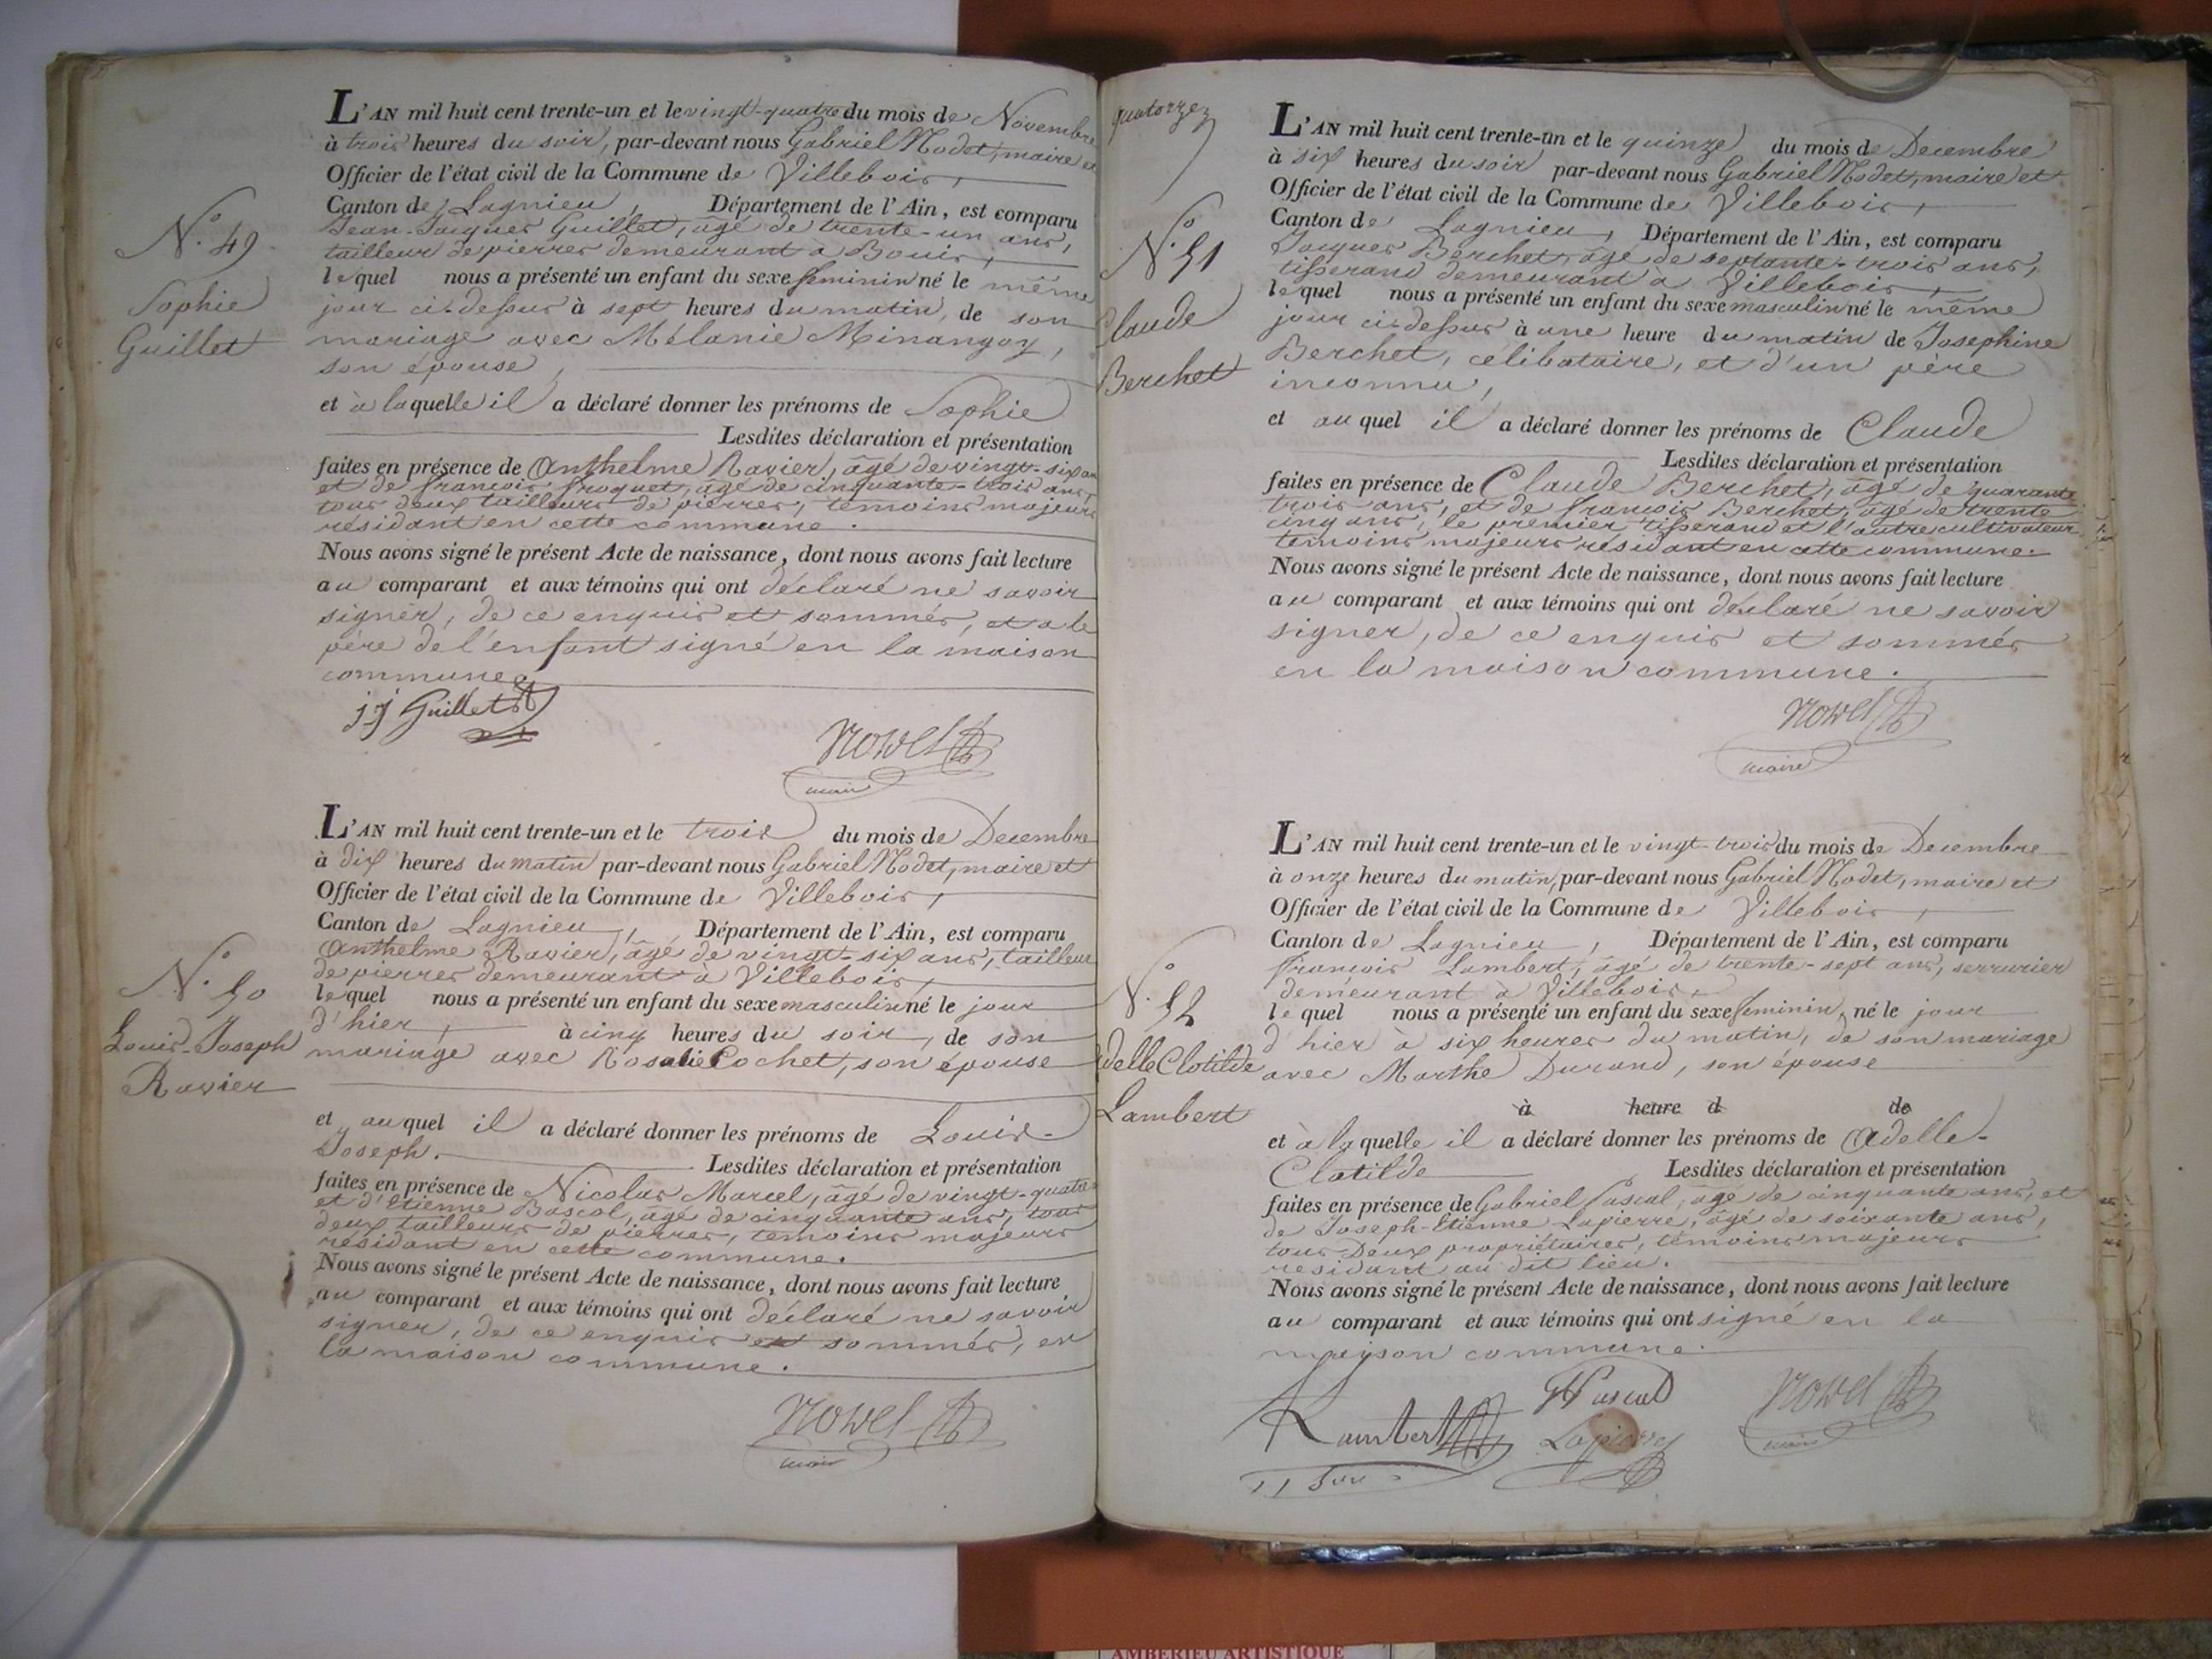 N.° 49
Sophie
Guillet
L'AN mil huit cent trente-un et le vingt-quatre du mois de Novembre
à trois heures du soir, par-devant nous Gabriel Nodet, maire et
Officier de l'état civil de la Commune de Villebois,
Canton de Lagnieu, Département de l'Ain, est comparu
Jean-Jacques Guillet, âgé de trente-un ans,
tailleur de pierres demeurant a Bouis,
lequel nous a présenté un enfant du sexe feminin né le même
jour ci-dessus à sept heures du matin, de son
mariage avec Mélanie Minangoy,
son épouse,
et à laquelle il a déclaré donner les prénoms de Sophie
Lesdites déclaration et présentation
faites en présence de Anthelme Ravier, âgé de vingt-six ans
et de françois froquet, âgé de cinquante-trois ans,
tous deux tailleurs de pierres, témoins majeurs
résidant en cette commune.
Nous avons signé le présent Acte de naissance, dont nous avons fait lecture
au comparant et aux témoins qui ont déclaré ne savoir
signer, de ce enquis et sommés, et a le
père de l'enfant signé en la maison
commune.
jj Guillet
Nowel
maire
N.° 50
Louis-Joseph
Ravier
L'AN mil huit cent trente-un et le trois du mois de Decembre
à dix heures du matin par-devant nous Gabriel Nodet, maire et
Officier de l'état civil de la Commune de Villebois,
Canton de Lagnieu, Département de l'Ain, est comparu
Anthelme Ravier, âgé de vingt-six ans, tailleur
de pierres demeurant à Villebois,
lequel nous a présenté un enfant du sexe masculin né le jour
d'hier, à cinq heures du soir, de son
mariage avec Rosalie Cochet, son épouse
et auquel il a déclaré donner les prénoms de Louis-
Joseph. Lesdites déclaration et présentation
faites en présence de Nicolas Marcel, âgé de vingt-quatre
et d'Etienne Bascol, âgé de cinquante ans, tous
deux tailleurs de pierres, témoins majeurs
résidant en cette commune.
Nous avons signé le présent Acte de naissance, dont nous avons fait lecture
au comparant et aux témoins qui ont déclaré ne savoir
signer, de ce enquis et sommés, en
la maison commune.
Nowel
maire
quatorze
N.° 51
Claude
Berchet
L'AN mil huit cent trente-un et le quinze du mois de Decembre
à six heures du soir par-devant nous Gabriel Nodet, maire et
Officier de l'état civil de la Commune de Villebois,
Canton de Lagnieu, Département de l'Ain, est comparu
Jacques Berchet, âgé de septante-trois ans,
tisserand demeurant à Villebois,
lequel nous a présenté un enfant du sexe masculin né le même
jour ci-dessus à une heure du matin de Josephine
Berchet, célibataire, et d'un père
inconnu,
et auquel il a déclaré donner les prénoms de Claude
Lesdites déclaration et présentation
faites en présence de Claude Berchet, âgé de quarante-
trois ans, et de françois Berchet, âgé de trente
cinq ans, le premier tisserand et l'autre cultivateur
témoins majeurs résidant en cette commune.
Nous avons signé le présent Acte de naissance, dont nous avons fait lecture
au comparant et aux témoins qui ont déclaré ne savoir
signer, de ce enquis et sommés
en la maison commune.
Nowel
maire
N.° 52
Adelle Clotilde
Lambert
L'AN mil huit cent trente-un et le vingt-trois du mois de Decembre
à onze heures du matin, par-devant nous Gabriel Nodet, maire et
Officier de l'état civil de la Commune de Villebois,
Canton de Lagnieu, Département de l'Ain, est comparu
françois Lambert, âgé de trente-sept ans, serrurier
demeurant à Villebois,
lequel nous a présenté un enfant du sexe feminin, né le jour
d'hier à six heures du matin, de son mariage
avec Marthe Durand, son épouse
à heure d de
et à laquelle il a déclaré donner les prénoms de Adelle-
Clotilde Lesdites déclaration et présentation
faites en présence de Gabriel Pascal, âgé de cinquante ans, et
de Joseph-Etienne Lapierre, âgé de soixante ans,
tous Deux propriétaires, témoins majeurs
residant au dit lieu.
Nous avons signé le présent Acte de naissance, dont nous avons fait lecture
au comparant et aux témoins qui ont signé en la
mayson commune.
Lambert
Pascal
Lapierre
Nowel
maire
AMBERIEU ARTISTIQUE